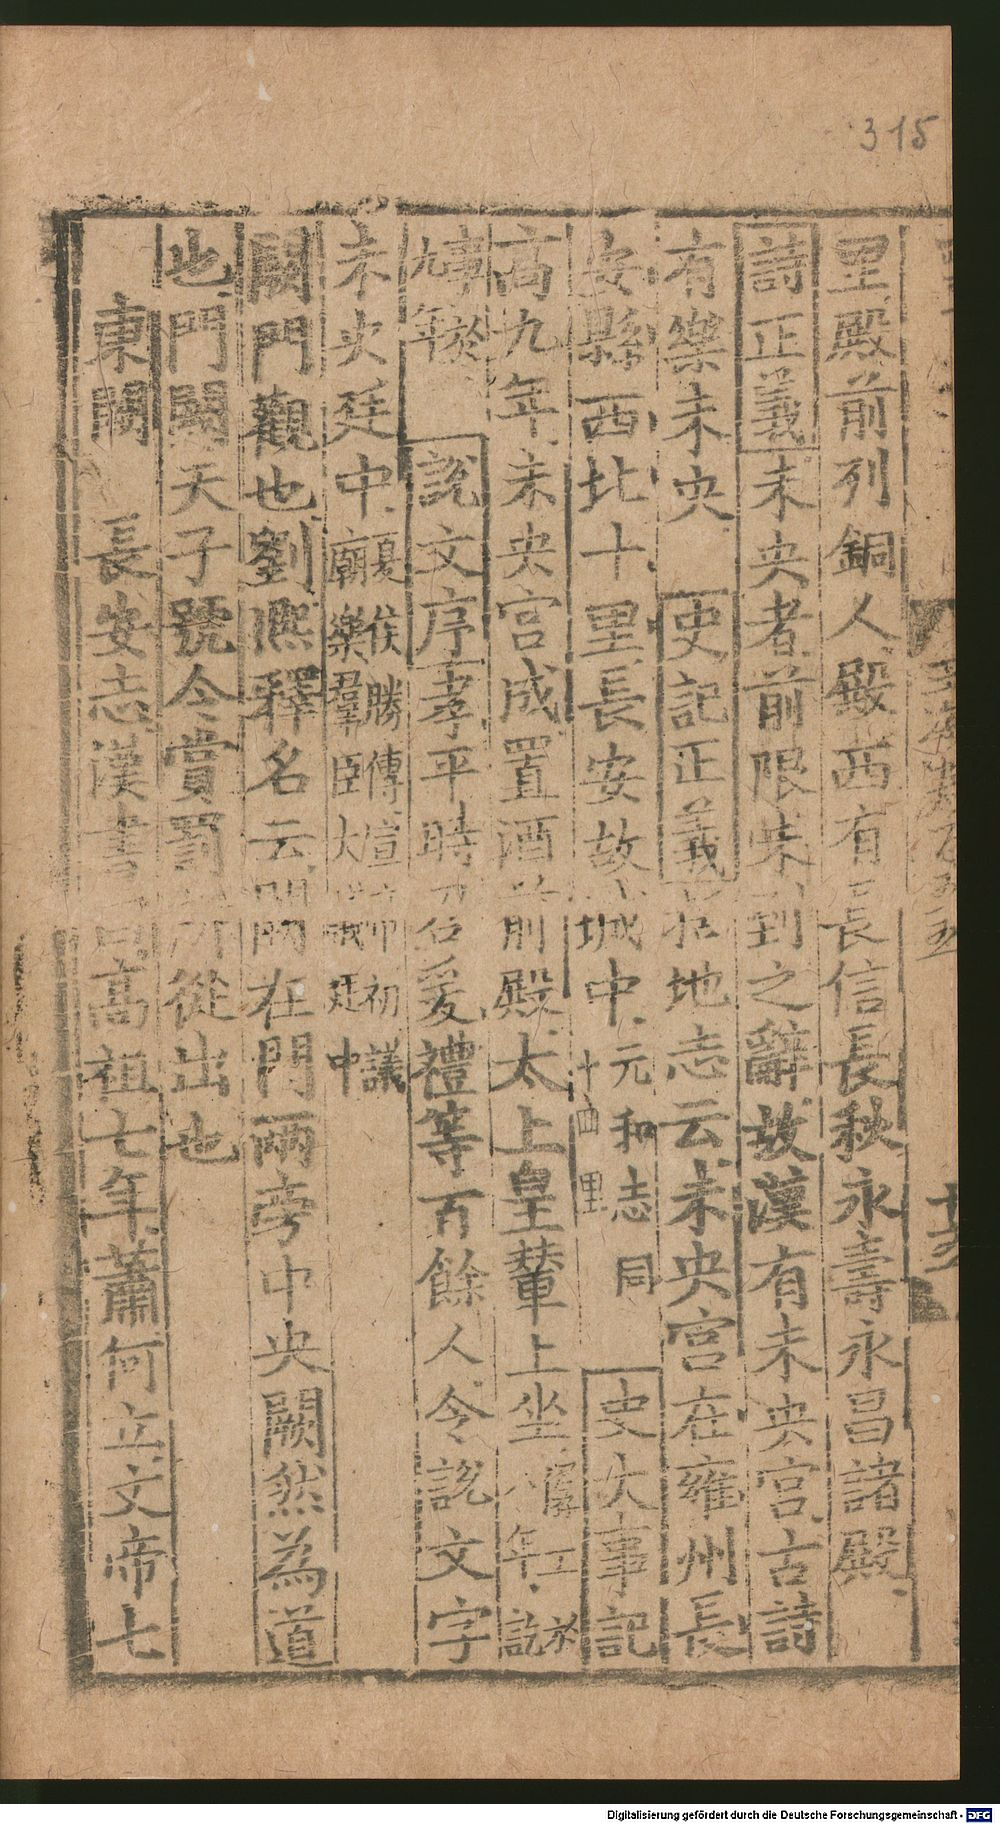 315
里殿前列銅人殿西有長信長秋永壽永昌諸殿
詩正義未央者前限未到之辭故漢有未央宮古詩
有樂未央 史記正義括地志云未央宮在雍州長
安縣西北十里長安故城中元和志同十四里 史大事記
高九年未央宮成置酒前殿太上皇輦上坐
九年 說文序孝平時召爰禮等百餘人令說文字
未央廷中夏侯勝傳宣帝初議廟樂羣臣大議廷中
闕門觀也劉熙釋名云闕在門兩旁中央闕然為道
也門闕天子號令賞罰所從出也
東闕 長安志漢書曰高祖七年蕭何立文帝七
Digitalisierung gefördert durch die Deutsche Forschungsgemeinschaft - DFG